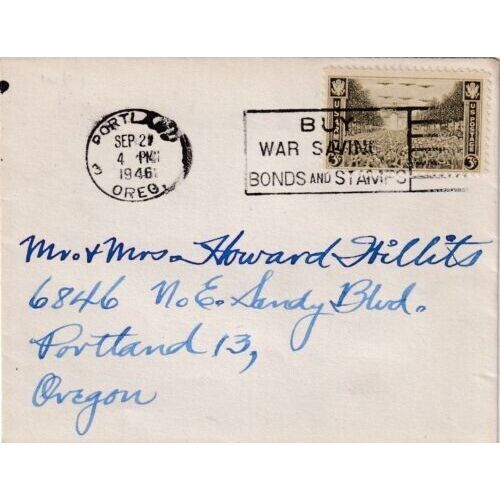 PORTLAND
SEP 21
4 PM
1946
OREG.
BUY
WAR SAVING
BONDS AND STAMPS
U.S. POSTAGE
3¢ 3¢
Mr. & Mrs. Howard Hillits
6846 No. E. Sandy Blvd.
Portland 13,
Oregon